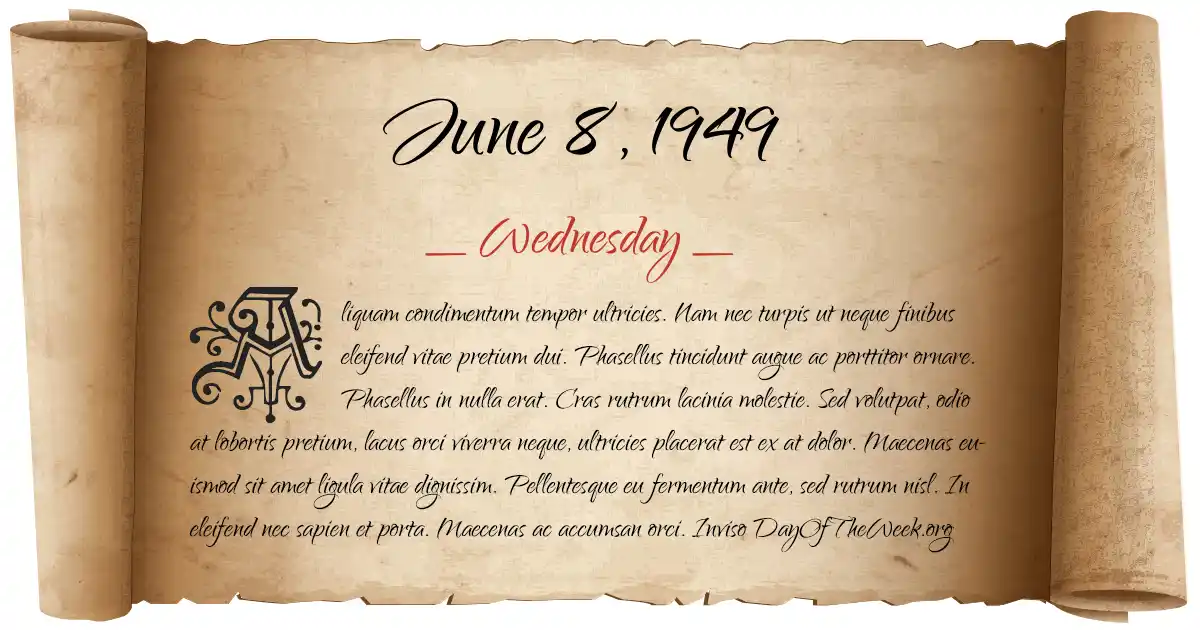 June 8, 1949
__ Wednesday __
Aliquam condimentum tempor ultricies. Nam nec turpis ut neque finibus
eleifend vitae pretium dui. Phasellus tincidunt augue ac porttitor ornare.
Phasellus in nulla erat. Cras rutrum lacinia molestie. Sed volutpat, odio
at lobortis pretium, lacus orci viverra neque, ultricies placerat est ex at dolor. Maecenas eu-
ismod sit amet ligula vitae dignissim. Pellentesque eu fermentum ante, sed rutrum nisl. In
eleifend nec sapien et porta. Maecenas ac accumsan orci. Inviso DayOfTheWeek.org